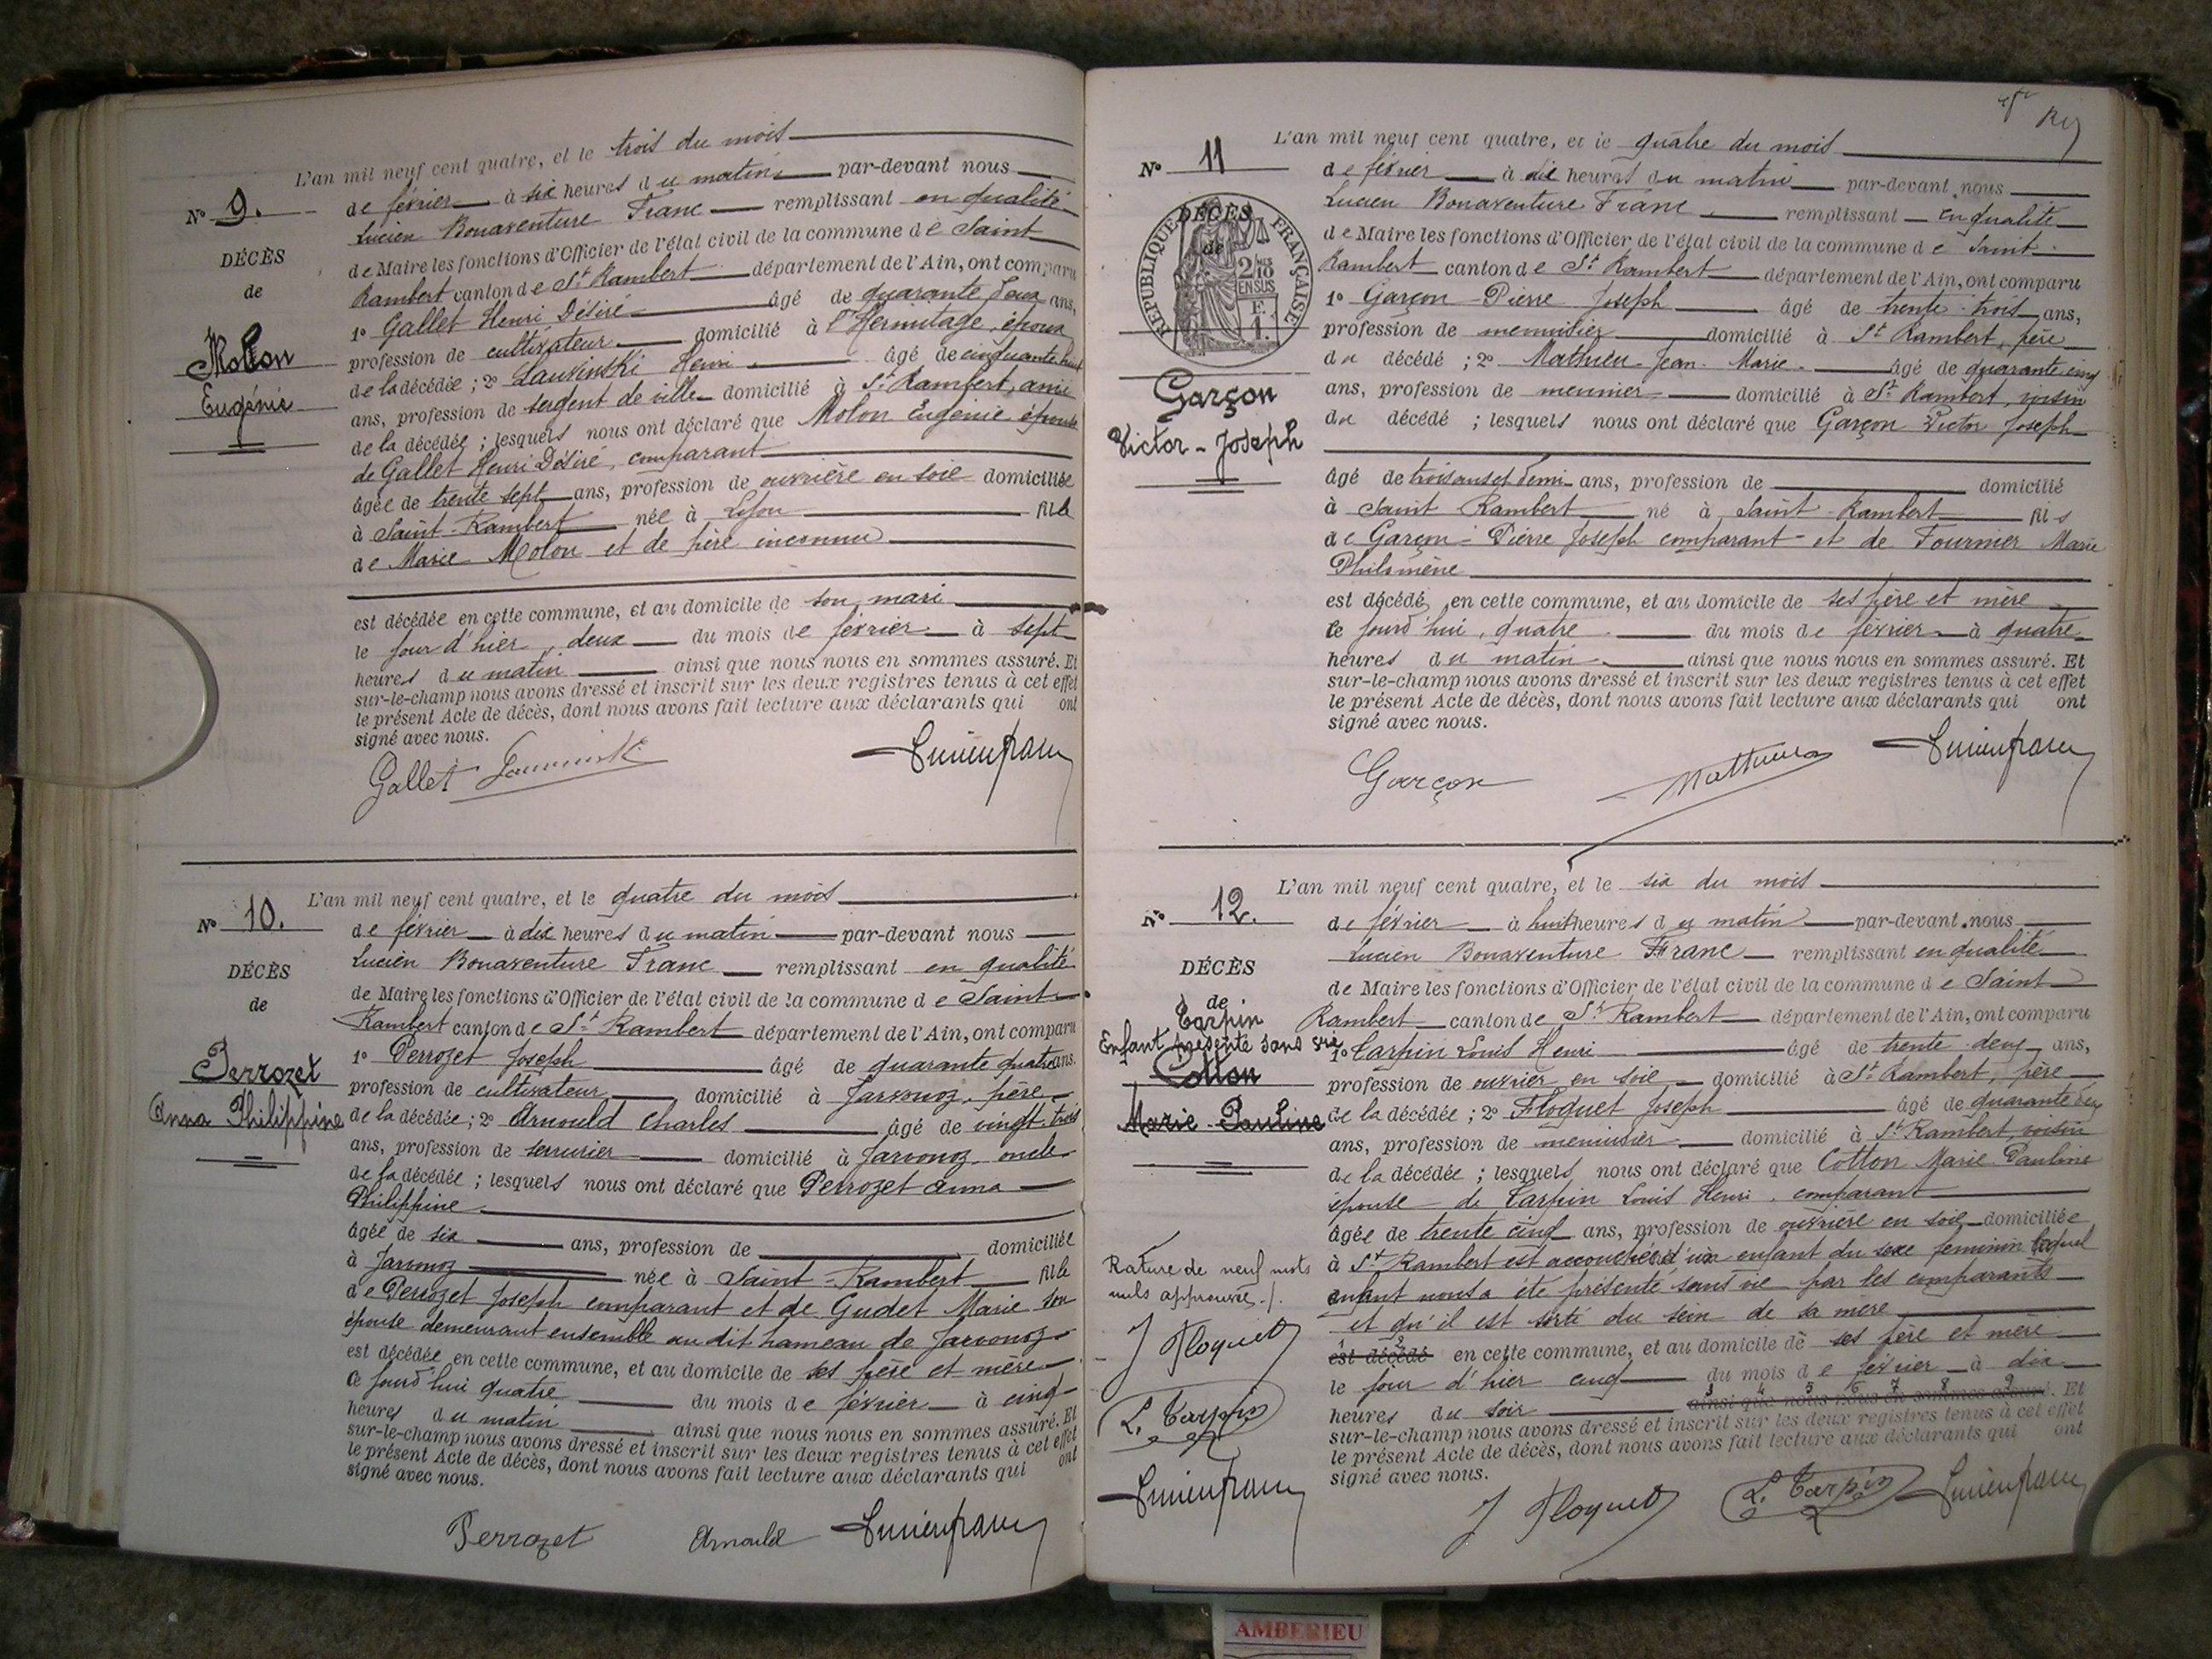 L'an mil neuf cent quatre, et le trois du mois
de février à dix heures du matin par-devant nous
Nº 9.
Lucien Bonaventure Franc remplissant en qualité
DÉCÈS
de Maire les fonctions d'Officier de l'état civil de la commune de Saint
de
Rambert canton de St Rambert département de l'Ain, ont comparu
1º Gallet Henri Désiré âgé de quarante deux ans,
Molon
profession de cultivateur domicilié à l'Hermitage, époux
Eugénie
de la décédée ; 2º Lauvinski Henri âgé de cinquante huit
ans, profession de sergent de ville domicilié à St Rambert, ami
de la décédée ; lesquels nous ont déclaré que Molon Eugénie épouse
de Gallet Henri Désiré, comparant
âgée de trente sept ans, profession de ouvrière en soie domiciliée
à Saint-Rambert née à fille
de Marie Molon et de père inconnu
est décédée en cette commune, et au domicile de son mari
le jour d'hier, deux du mois de février à sept
heures du matin ainsi que nous nous en sommes assuré. Et
sur-le-champ nous avons dressé et inscrit sur les deux registres tenus à cet effet
le présent Acte de décès, dont nous avons fait lecture aux déclarants qui ont
signé avec nous.
Gallet Lucien franc
L'an mil neuf cent quatre, et le quatre du mois
Nº 10.
de février à dix heures du matin par-devant nous
Lucien Bonaventure Franc remplissant en qualité
DÉCÈS
de Maire les fonctions d'Officier de l'état civil de la commune de Saint
de
Rambert canton de St Rambert département de l'Ain, ont comparu
Perrozet
1º Perrozet Joseph âgé de quarante quatre ans.
profession de cultivateur domicilié à Javornoz, père
Anna Philippine
de la décédée ; 2º Arnould Charles âgé de vingt-trois
ans, profession de serrurier domicilié à Javornoz oncle
de la décédée ; lesquels nous ont déclaré que Perrozet Anna
Philippine
âgée de six ans, profession de domiciliée
à Javornoz née à Saint-Rambert fille
de Perrozet Joseph comparant et de Gudet Marie son
épouse demeurant ensemble au dit hameau de Javornoz
est décédée en cette commune, et au domicile de ses père et mère
ce jourd'hui quatre du mois de février à cinq
heures du matin ainsi que nous nous en sommes assuré. Et
sur-le-champ nous avons dressé et inscrit sur les deux registres tenus à cet effet
le présent Acte de décès, dont nous avons fait lecture aux déclarants qui ont
signé avec nous.
Perrozet Arnould Lucien franc
L'an mil neuf cent quatre, et le quatre du mois
Nº 11
de février à dix heures du matin par-devant nous
Lucien Bonaventure Franc remplissant en qualité
DÉCÈS
de
RÉPUBLIQUE FRANÇAISE
2/10 EN SUS
F. 1.
de Maire les fonctions d'Officier de l'état civil de la commune de Saint
Rambert canton de St Rambert département de l'Ain, ont comparu
1º Garçon Pierre Joseph âgé de trente-trois ans,
profession de menuisier domicilié à St Rambert, père
du décédé ; 2º Mathieu Jean-Marie âgé de quarante cinq
Garçon
ans, profession de meunier domicilié à St Rambert, voisin
Victor-Joseph
du décédé ; lesquels nous ont déclaré que Garçon Victor Joseph
âgé de trois ans et demi ans, profession de domicilié
à Saint Rambert né à Saint-Rambert fils
de Garçon-Pierre Joseph comparant et de Fournier Marie
Philomène
est décédé en cette commune, et au domicile de ses père et mère
ce jourd'hui, quatre du mois de février à quatre
heures du matin ainsi que nous nous en sommes assuré. Et
sur-le-champ nous avons dressé et inscrit sur les deux registres tenus à cet effet
le présent Acte de décès, dont nous avons fait lecture aux déclarants qui ont
signé avec nous.
Garçon Mathieu Lucien franc
L'an mil neuf cent quatre, et le six du mois
Nº 12.
de février à huit heures du matin par-devant nous
Lucien Bonaventure Franc remplissant en qualité
DÉCÈS
de Maire les fonctions d'Officier de l'état civil de la commune de Saint
de
Tarpin
Rambert canton de St Rambert département de l'Ain, ont comparu
Enfant présenté sans vie
1º Tarpin Louis Henri âgé de trente-deux ans,
Cotton
profession de ouvrier en soie domicilié à St Rambert, père
Marie-Pauline
de la décédée ; 2º Floquet Joseph âgé de quarante
ans, profession de menuisier domicilié à St Rambert, voisin
de la décédée ; lesquels nous ont déclaré que Cotton Marie Pauline
épouse de Tarpin Louis Henri, comparant
âgée de trente cinq ans, profession de ouvrière en soie domiciliée
à St Rambert est accouchée d'un enfant du sexe feminin lequel
enfant nous a été présenté sans vie par les comparants
et qu'il est sorti du sein de sa mère
est décédé en cette commune, et au domicile de ses père et mère
le jour d'hier cinq du mois de février à dix
heures du soir ainsi que nous nous en sommes assuré. Et
sur-le-champ nous avons dressé et inscrit sur les deux registres tenus à cet effet
le présent Acte de décès, dont nous avons fait lecture aux déclarants qui ont
signé avec nous.
Rature de neuf mots
nuls approuvée
J Floquet
L. Tarpin
Lucien franc
J Floquet L. Tarpin Lucien franc
AMBERIEU